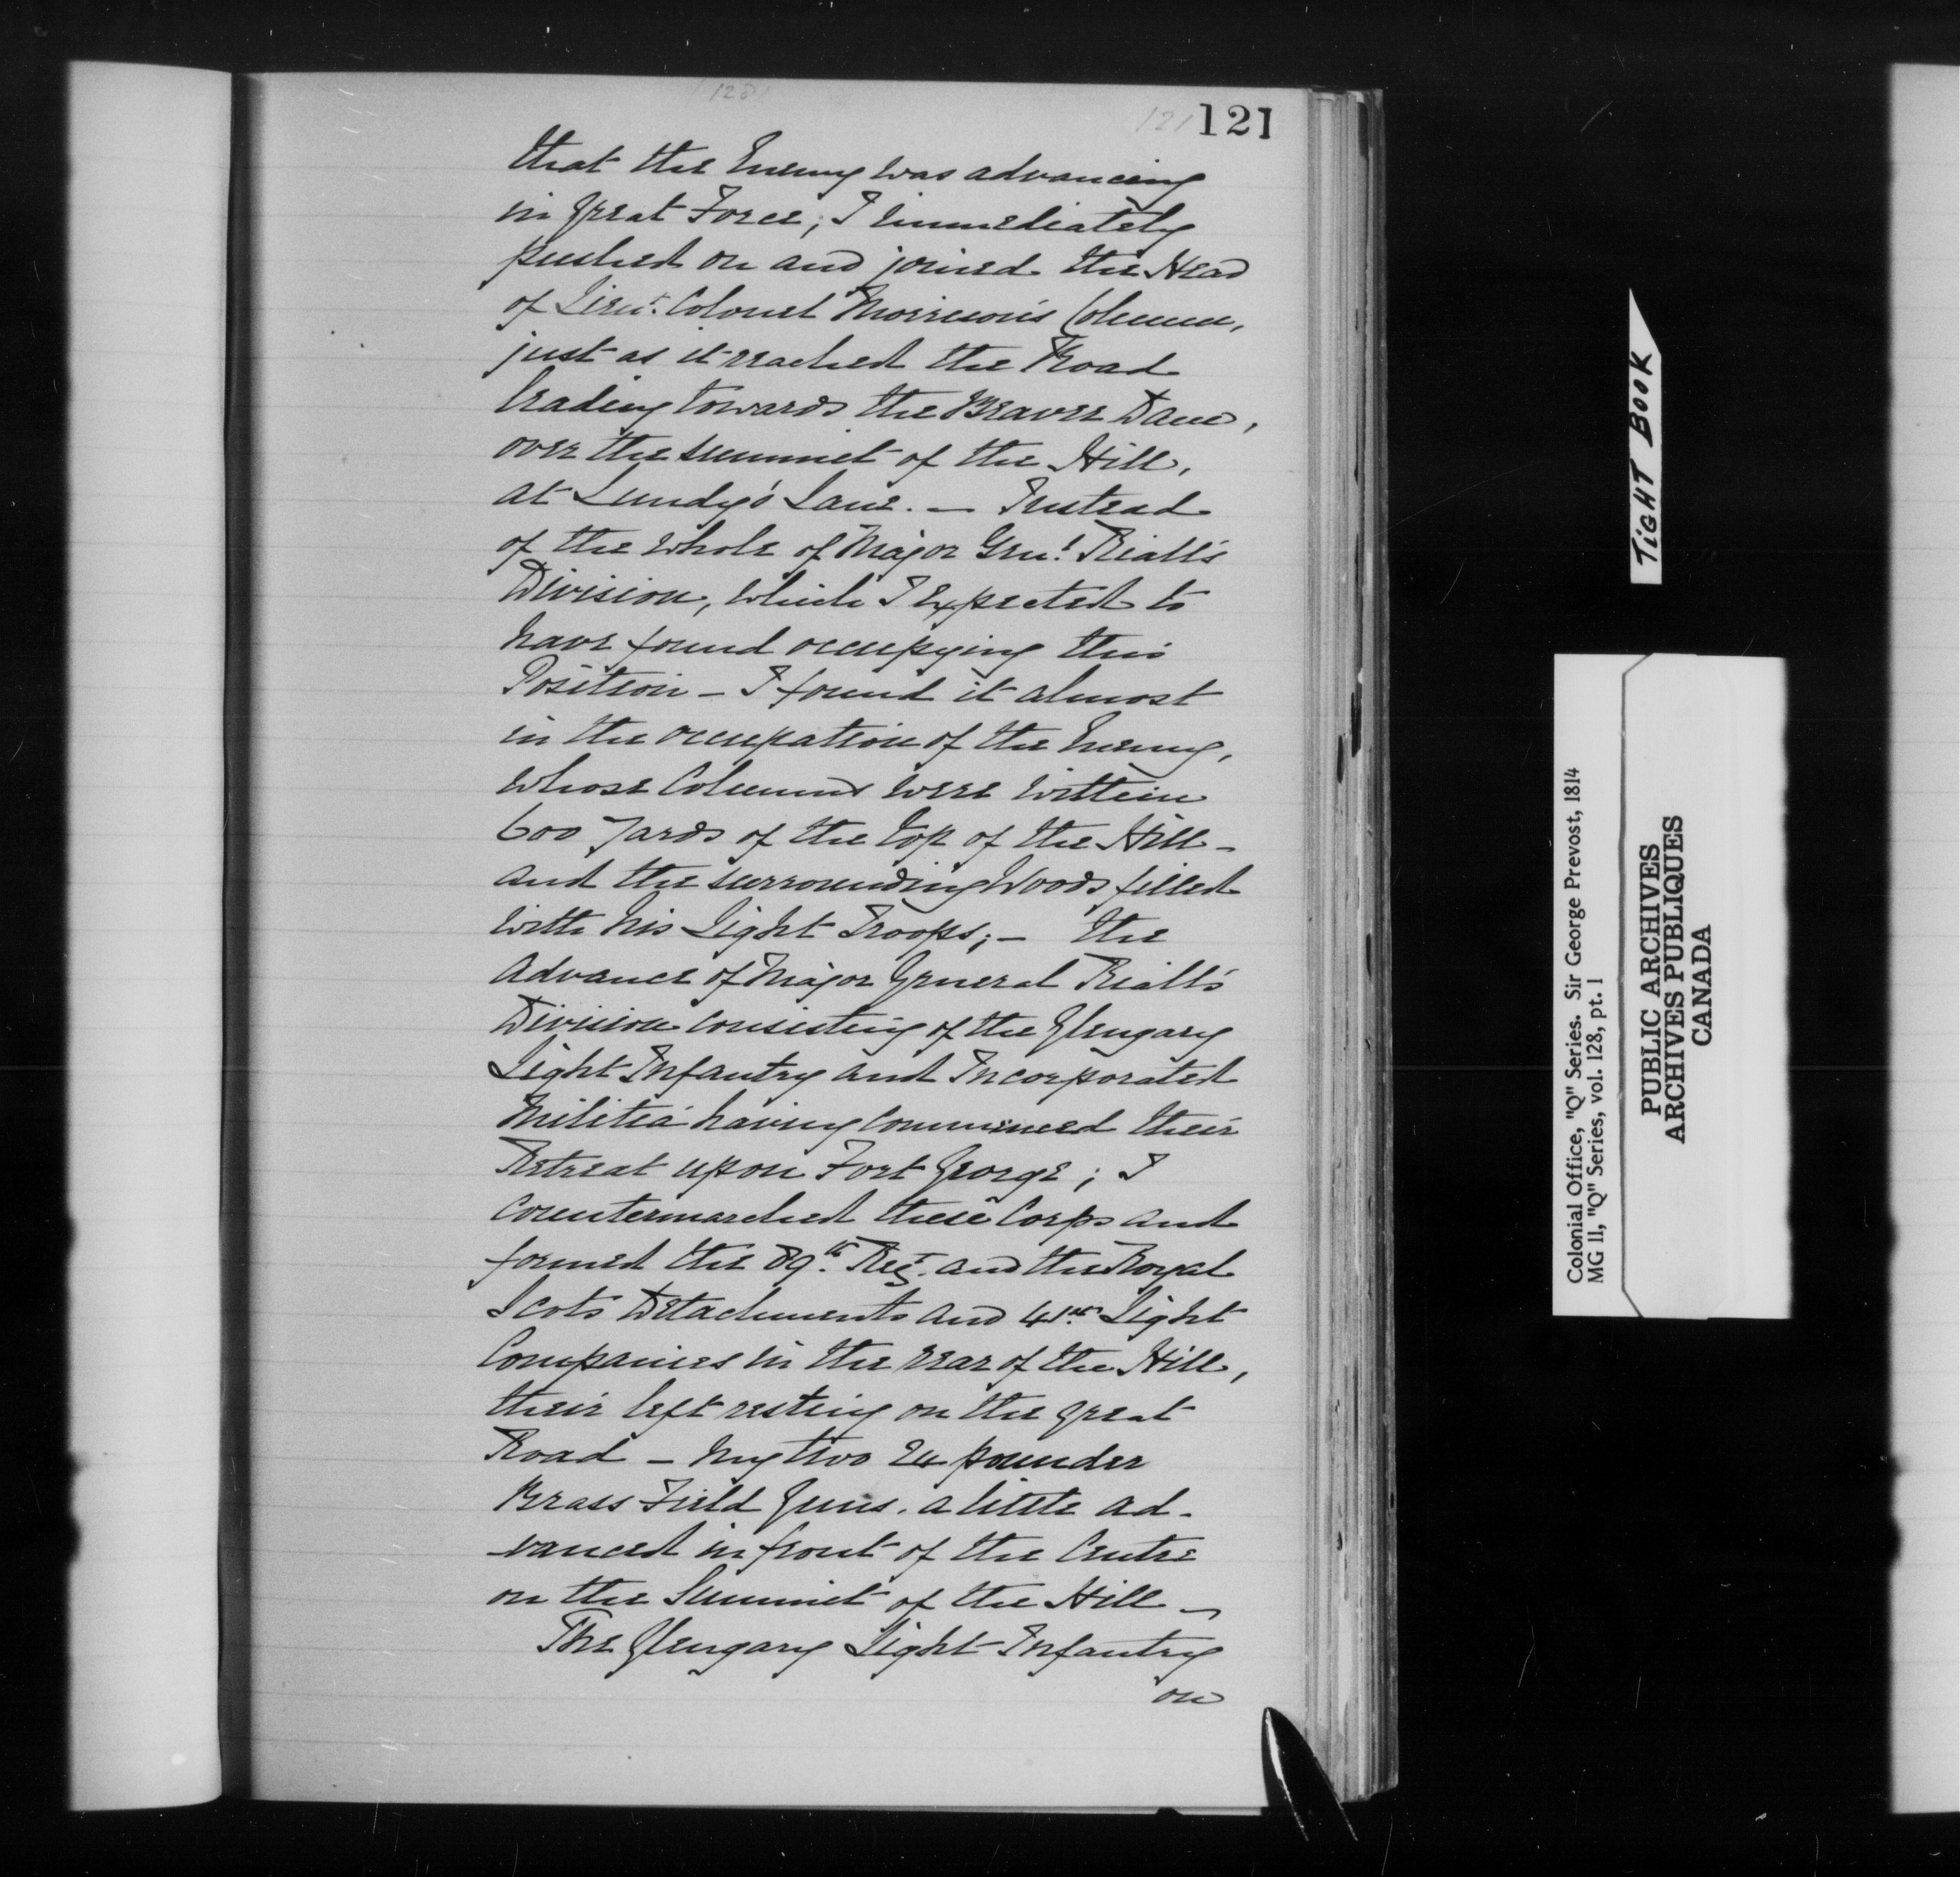 128
121 121
that the Enemy was advancing
in great Force, I immediately
pushed on and joined the Head
of Lieut. Colonel Morrison's Column,
just as it reached the Road
leading towards the Beaver Dam,
over the summit of the Hill,
at Lundy's Lane. — Instead
of the whole of Major Genl. Riall's
Division, which I expected to
have found occupying this
Position — I found it almost
in the occupation of the Enemy,
whose Columns were within
600 yards of the top of the Hill —
and the surrounding Woods filled
with his Light Troops; — the
Advance of Major General Riall's
Division consisting of the Glengary
Light Infantry and Incorporated
Militia having commenced their
Retreat upon Fort George; I
countermarched these Corps and
formed the 89th. Regt. and the Royal
Scots Detachments and 41st. Light
Companies in the rear of the Hill,
their left resting on the great
Road — my two 24 pounder
Brass Field Guns, a little ad-
-vanced in front of the Centre
on the Summit of the Hill —
The Glengary Light Infantry
on
TIGHT BOOK
Colonial Office, "Q" Series. Sir George Prevost, 1814
MG 11, "Q" Series, vol. 128, pt. 1
PUBLIC ARCHIVES
ARCHIVES PUBLIQUES
CANADA